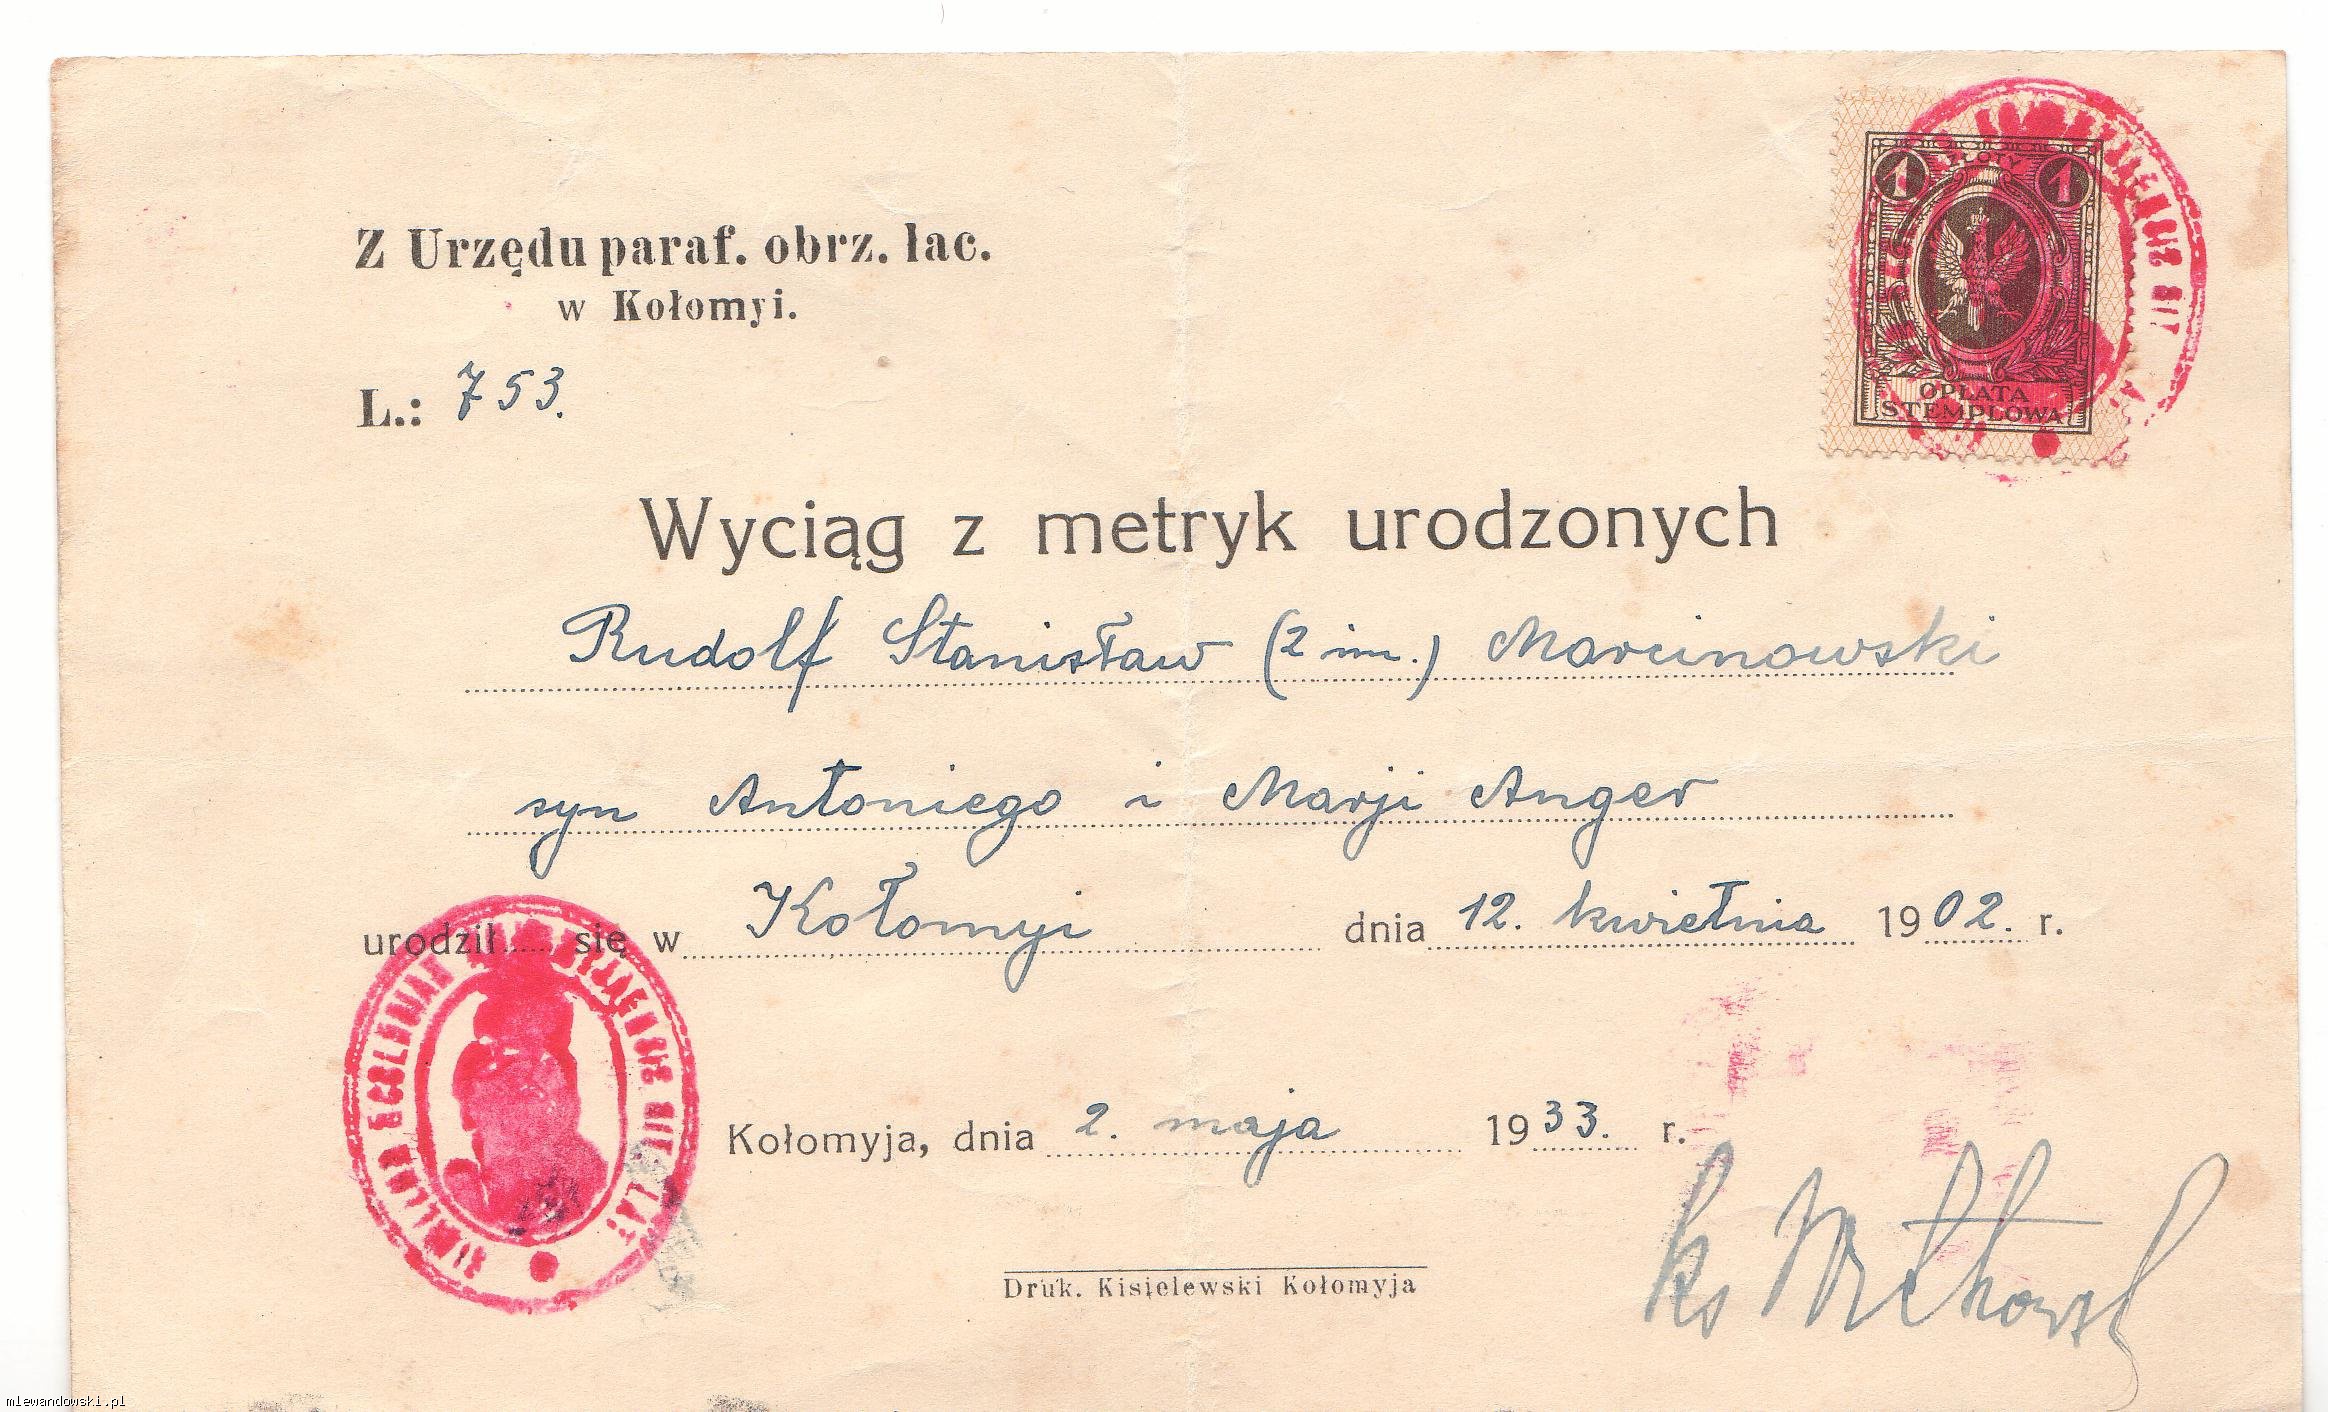 Z Urzędu paraf. obrz. łac.
w Kołomyi.
L.: 753.
1 ZŁOTY 1
OPŁATA
STEMPLOWA
Wyciąg z metryk urodzonych
Rudolf Stanisław (2 im.) Marcinowski
syn Antoniego i Marji Anger
urodził się w Kołomyi dnia 12. kwietnia 1902. r.
Kołomyja, dnia 2. maja 1933. r.
ks
Druk. Kisielewski Kołomyja
mlewandowski.pl